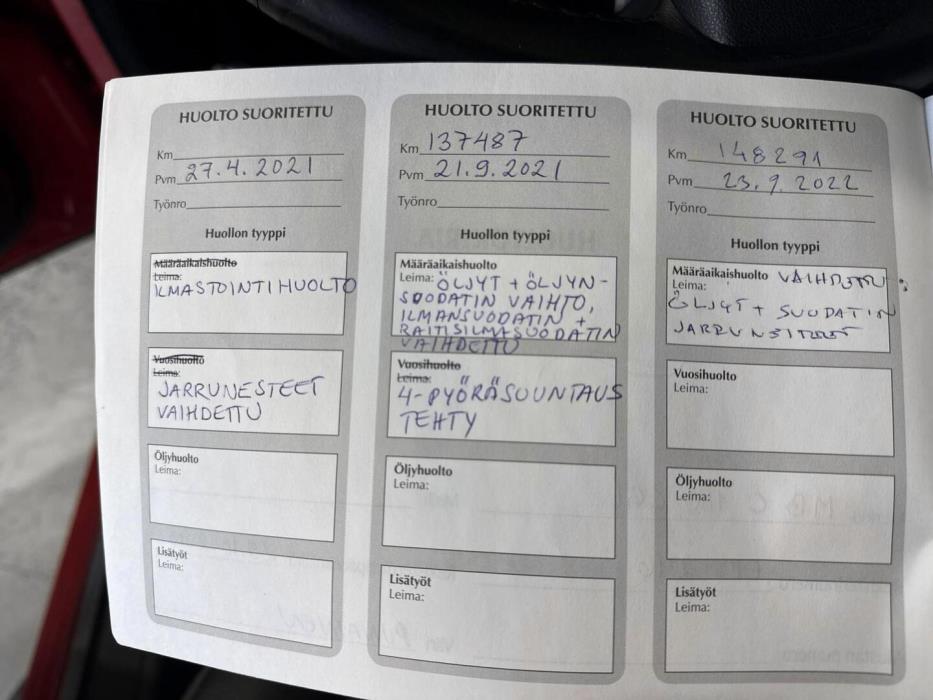 HUOLTO SUORITETTU
Km
Pvm 27.4.2021
Työnro
Huollon tyyppi
Määräaikaishuolto
Leima:
ILMASTOINTIHUOLTO
Vuosihuolto
Leima:
JARRUNESTEET
VAIHDETTU
Öljyhuolto
Leima:
Lisätyöt
Leima:
HUOLTO SUORITETTU
Km 137487
Pvm 21.9.2021
Työnro
Huollon tyyppi
Määräaikaishuolto
Leima: ÖLJYT + ÖLJYN-
SUODATIN VAIHTO,
ILMANSUODATIN +
RAITISILMASUODATIN
VAIHDETTU
Vuosihuolto
Leima:
4-PYÖRÄSUUNTAUS
TEHTY
Öljyhuolto
Leima:
Lisätyöt
Leima:
HUOLTO SUORITETTU
Km 148291
Pvm 23.9.2022
Työnro
Huollon tyyppi
Määräaikaishuolto VAIHDETTU:
Leima:
ÖLJYT + SUODATIN
JARRUNESTEET
Vuosihuolto
Leima:
Öljyhuolto
Leima:
Lisätyöt
Leima: